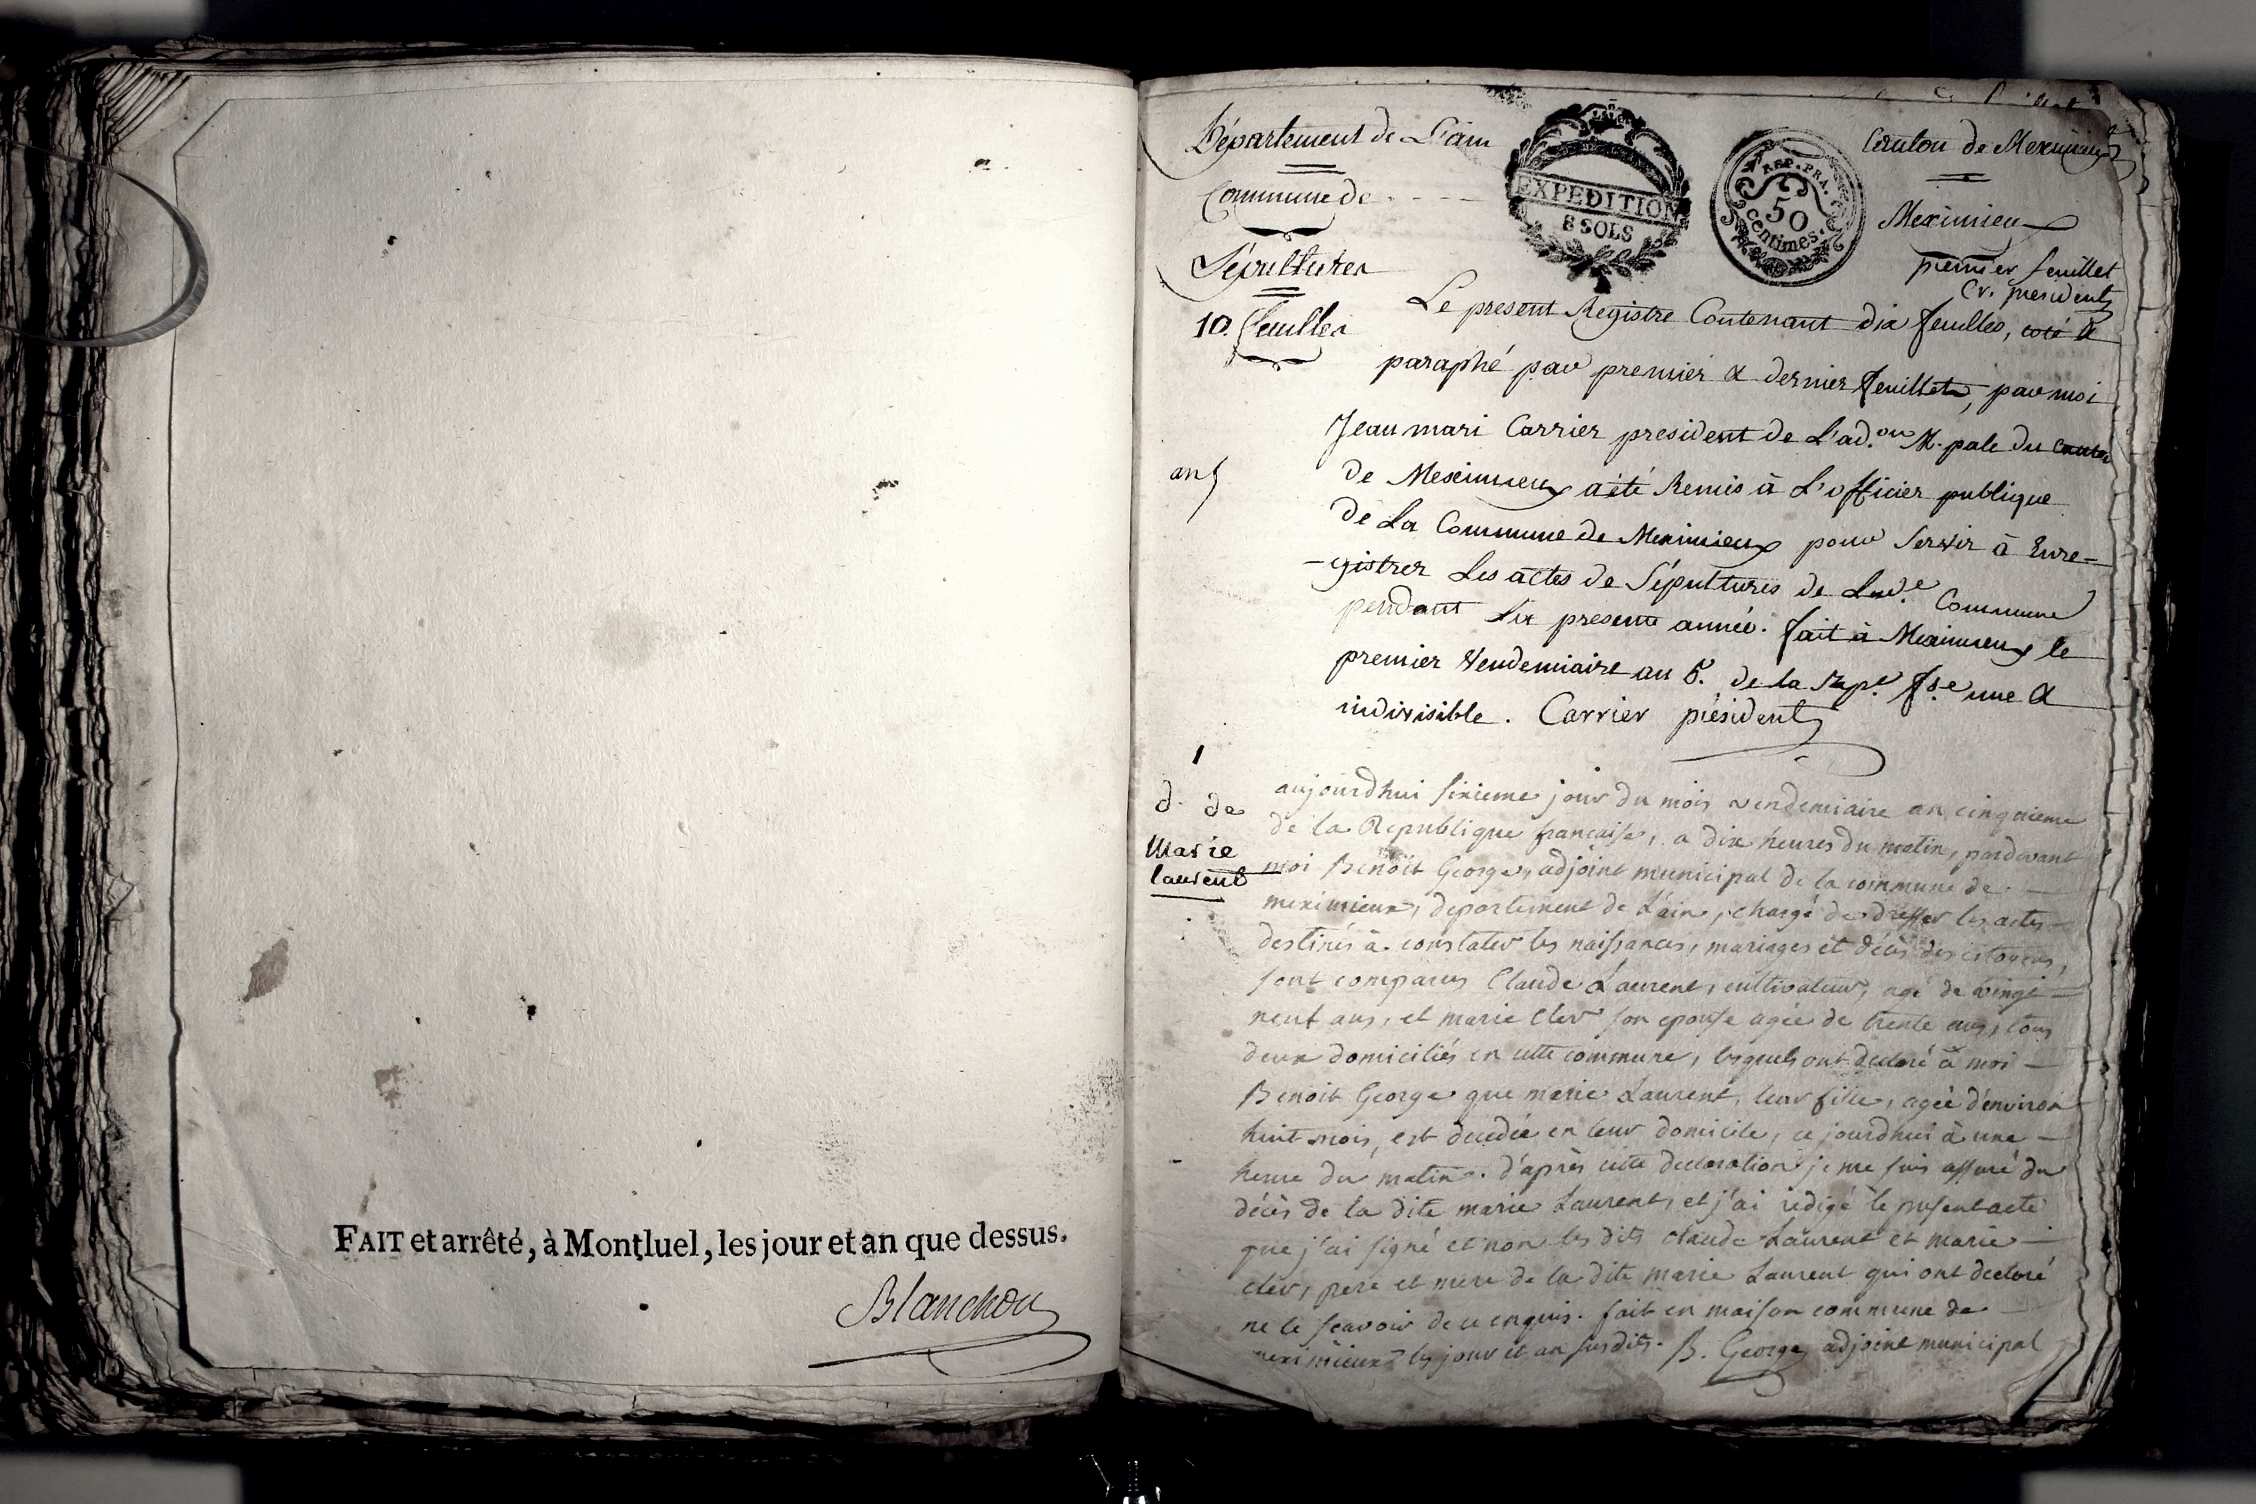 FAIT et arrêté, à Montluel, les jour et an que dessus.
Blanchon
Département de L'ain
Canton de Meximieux
Commune de
Meximieux
EXPEDITION
8 SOLS
REP. FRA.
50
centimes.
Sépultures
10. feuilles
premier feuillet
Cr. président
Le present Registre Contenant dix feuilles, coté &
paraphé par premier & dernier feuillets, par moi
Jean mari Carrier president de L'ad.on M.pale du canton
an 5
de Meximieux a été Remis à L'officier publique
de La Commune de Meximieux pour Servir à Enre-
-gistrer Les actes de Sépultures de Lad.e Commune
pendant La presente année. fait à Meximieux le
premier Vendemiaire an 5. de la Rep.e f.se une &
indivisible. Carrier président
1
d. de
Marie
laurent
aujourdhui sixieme jour du mois vendemiaire an cinquieme
de la Republique francaise, a dix heures du matin, pardevant
moi Benoit George, adjoint municipal de la commune de
meximieux, departement de L'ain, chargé de dresser les actes
destinés à constater les naissances, mariages et décès des citoyens,
sont comparus Claude Laurent, cultivateur, agé de vingt
neuf ans, et marie Cler son epouse agée de trente ans, tous
deux domiciliés en cette commune, lesquels ont declaré à moi
Benoit George que marie Laurent, leur fille, agée d'environ
huit mois, est decedée en leur domicile, ce jourdhui à une
heure du matin. d'après cette declaration je me suis assuré du
décès de la dite marie Laurent, et j'ai redigé le present acte
que j'ai signé et non les dits claude Laurent et marie
cler, pere et mere de la dite marie Laurent qui ont declaré
ne le scavoir de ce enquis. fait en maison commune de
meximieux les jour et an susdits. B. George adjoint municipal